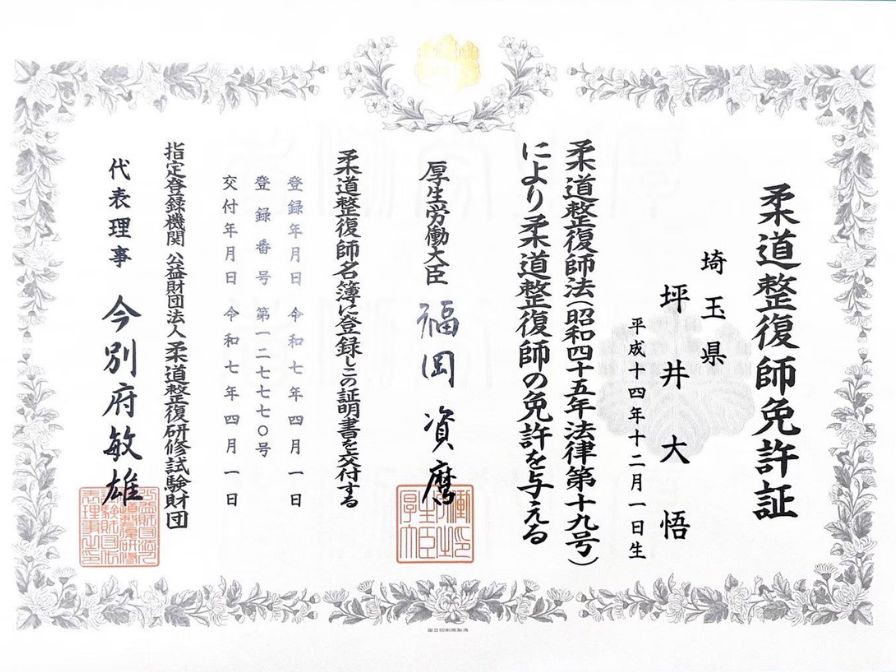 柔道整復師免許証
埼玉県
坪井大悟
平成十四年十二月一日生
柔道整復師法(昭和四十五年法律第十九号)
により柔道整復師の免許を与える
厚生労働大臣 福岡資麿
柔道整復師名簿に登録しこの証明書を交付する
登録年月日 令和七年四月一日
登録番号 第一二七七七〇号
交付年月日 令和七年四月一日
指定登録機関 公益財団法人 柔道整復研修試験財団
代表理事 今別府敏雄